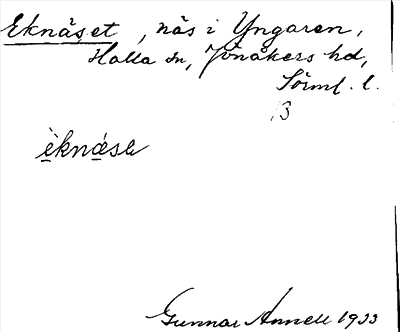 Eknäset, näs i Yngaren,
Halla sn, Jönåkers hd,
Sörml. l.
13
èknásɛ
Gunnar Annell 1933